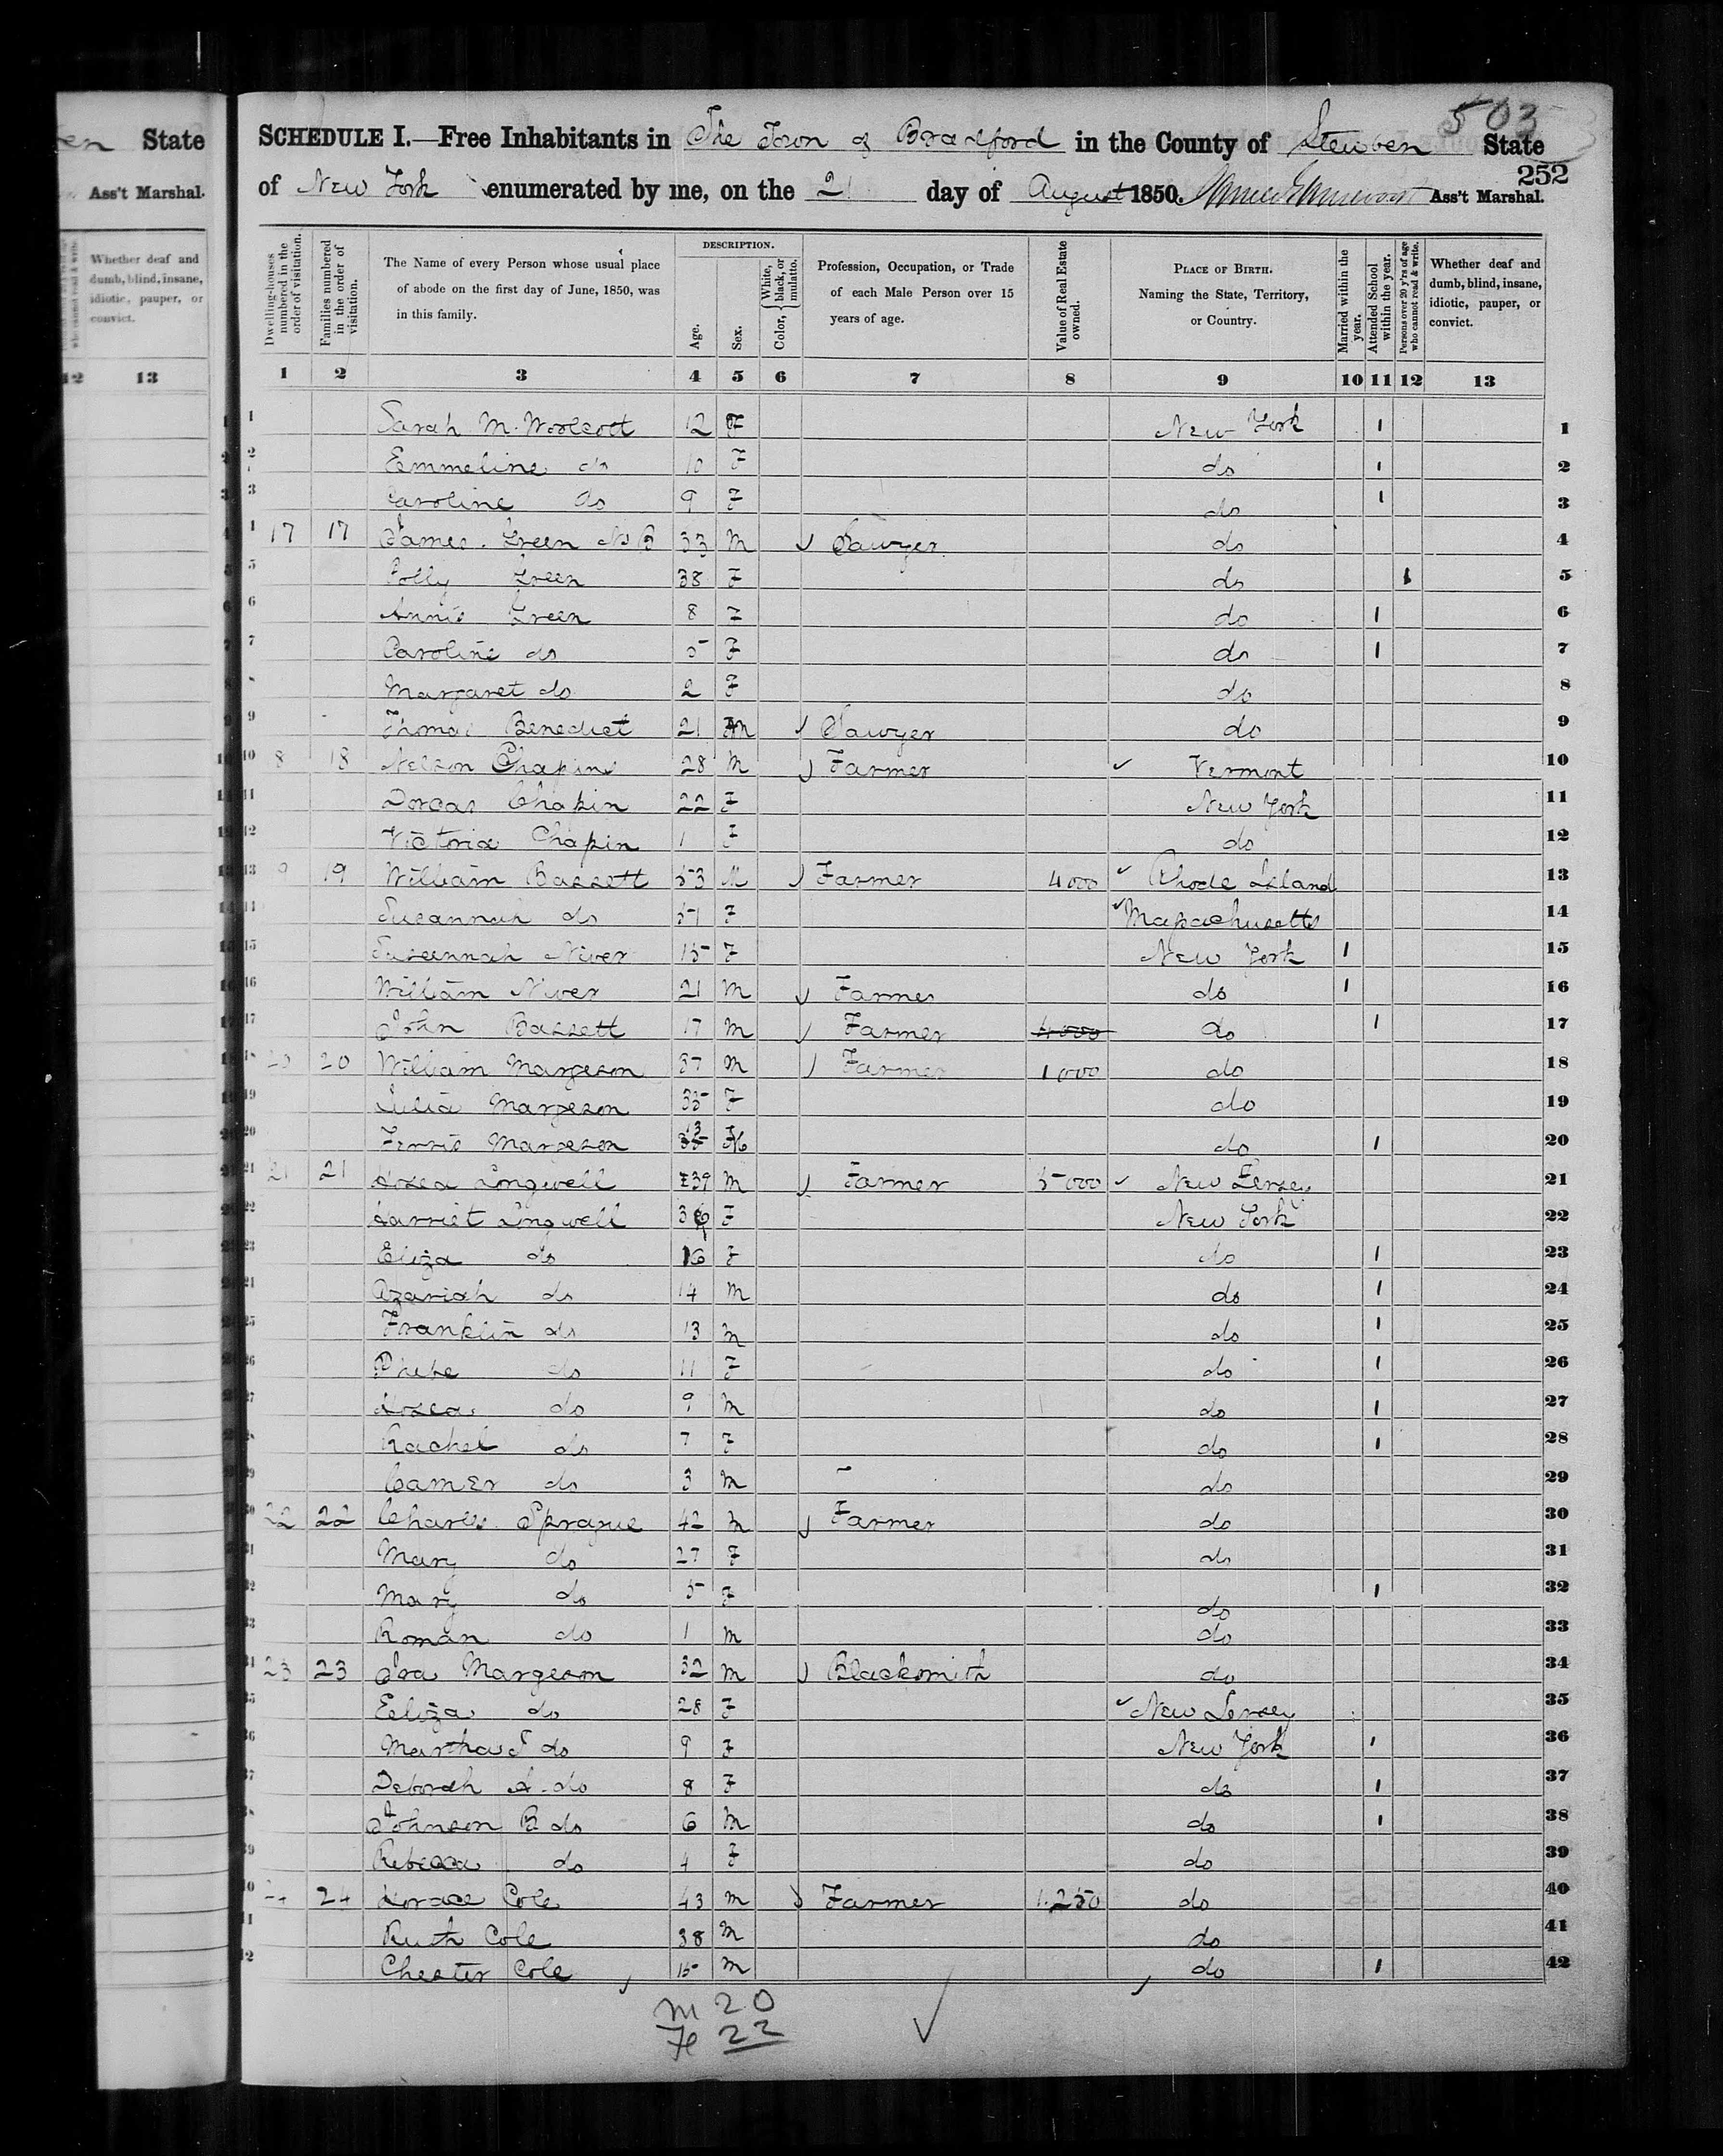 503
SCHEDULE I.—Free Inhabitants in The Town of Bradford in the County of Steuben State
252
of New York enumerated by me, on the 21 day of August 1850. Ass't Marshal.
en State
Ass't Marshal.
Whether deaf and dumb, blind, insane, idiotic, pauper, or convict.
12 13
Dwelling-houses numbered in the order of visitation.
Families numbered in the order of visitation.
The Name of every Person whose usual place of abode on the first day of June, 1850, was in this family.
DESCRIPTION.
Age.
Sex.
Color, { White, black, or mulatto.
Profession, Occupation, or Trade of each Male Person over 15 years of age.
Value of Real Estate owned.
PLACE OF BIRTH. Naming the State, Territory, or Country.
Married within the year.
Attended School within the year.
Persons over 20 y'rs of age who cannot read & write.
Whether deaf and dumb, blind, insane, idiotic, pauper, or convict.
1 2 3 4 5 6 7 8 9 10 11 12 13
1 Sarah M. Woolcott 12 F New York 1 1
2 Emmeline do 10 F do 1 2
3 Caroline do 9 F do 1 3
17 17 James. Green 33 M Sawyer do 4
5 Polly Green 38 F do 1 5
6 Annis Green 8 F do 1 6
7 Caroline do 5 F do 1 7
Margaret do 2 F do 8
9 Thomas Benedict 21 M Sawyer do 9
10 8 18 Nelson Chapin 28 M Farmer ✓ Vermont 10
11 Dorcas Chapin 22 F New York 11
12 Victoria Chapin 1 F do 12
13 9 19 William Bassett 53 M Farmer 4000 ✓ Rhode Island 13
14 Susannah do 51 F ✓ Massachusetts 14
15 Suseennah Niver 15 F New York 1 15
16 William Niver 21 M Farmer do 1 16
17 John Bassett 17 M Farmer 4000 do 1 17
20 20 William Margeson 37 M Farmer 1000 do 18
19 Julia Margeson 35 F do 19
20 Margeson 13 do 1 20
21 21 21 Hosea Longwell 39 M Farmer 5000 ✓ New Jersey 21
22 Harriet Longwell 36 F New York 22
23 Eliza do 16 F do 1 23
24 Azariah do 14 M do 1 24
25 Franklin do 13 M do 1 25
26 Phebe do 11 F do 1 26
27 Hosea do 9 M do 1 27
Rachel do 7 F do 1 28
29 do 3 M do 29
30 22 22 Charles. Sprague 42 M Farmer do 30
31 Mary do 27 F do 31
32 Mary do 5 F do 1 32
33 Roman do 1 M do 33
23 23 Ira Margeson 32 M Blacksmith do 34
35 Eeliza do 28 F ✓ New Jersey 35
36 Martha do 9 F New York 1 36
37 Deborah A. do 8 F do 1 37
Johnson B do 6 M do 1 38
39 Rebecca do 4 F do 39
24 Horace Cole 43 M Farmer 1.250 do 40
Ruth Cole 38 M do 41
Chester Cole 15 M do 1 42
M 20
Fe 22 ✓